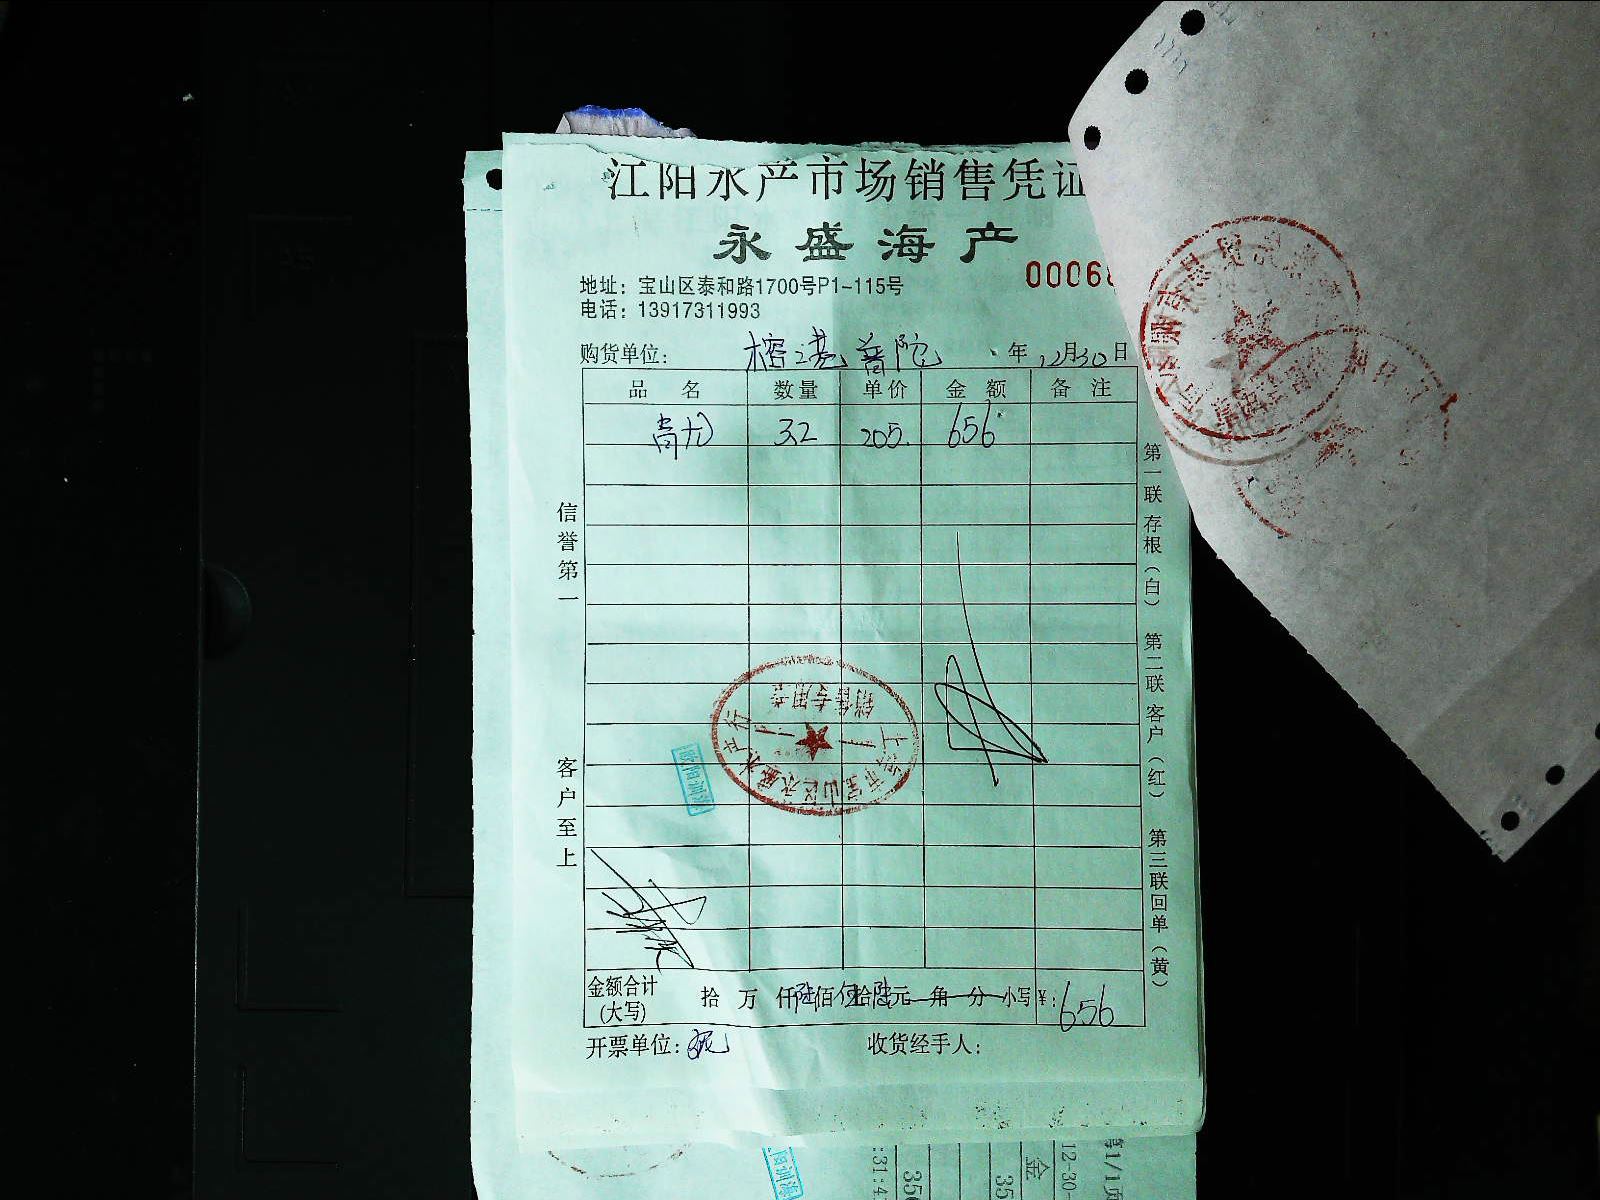 江阳水产市场销售凭证
永盛海产
00068
地址：宝山区泰和路1700号P1-115号
电话：13917311993
购货单位：榕港普陀 年12月30日
品名 数量 单价 金额 备注
青龙 3.2 205. 656
信誉第一
客户至上
第一联存根（白） 第二联客户（红） 第三联回单（黄）
上海市宝山区永盛水产行
销售专用章
金额合计(大写) 拾 万 仟陆佰伍拾陆元 角 分 小写¥：656
开票单位： 收货经手人：
第1/1页
12-30-
金
:31:4
350